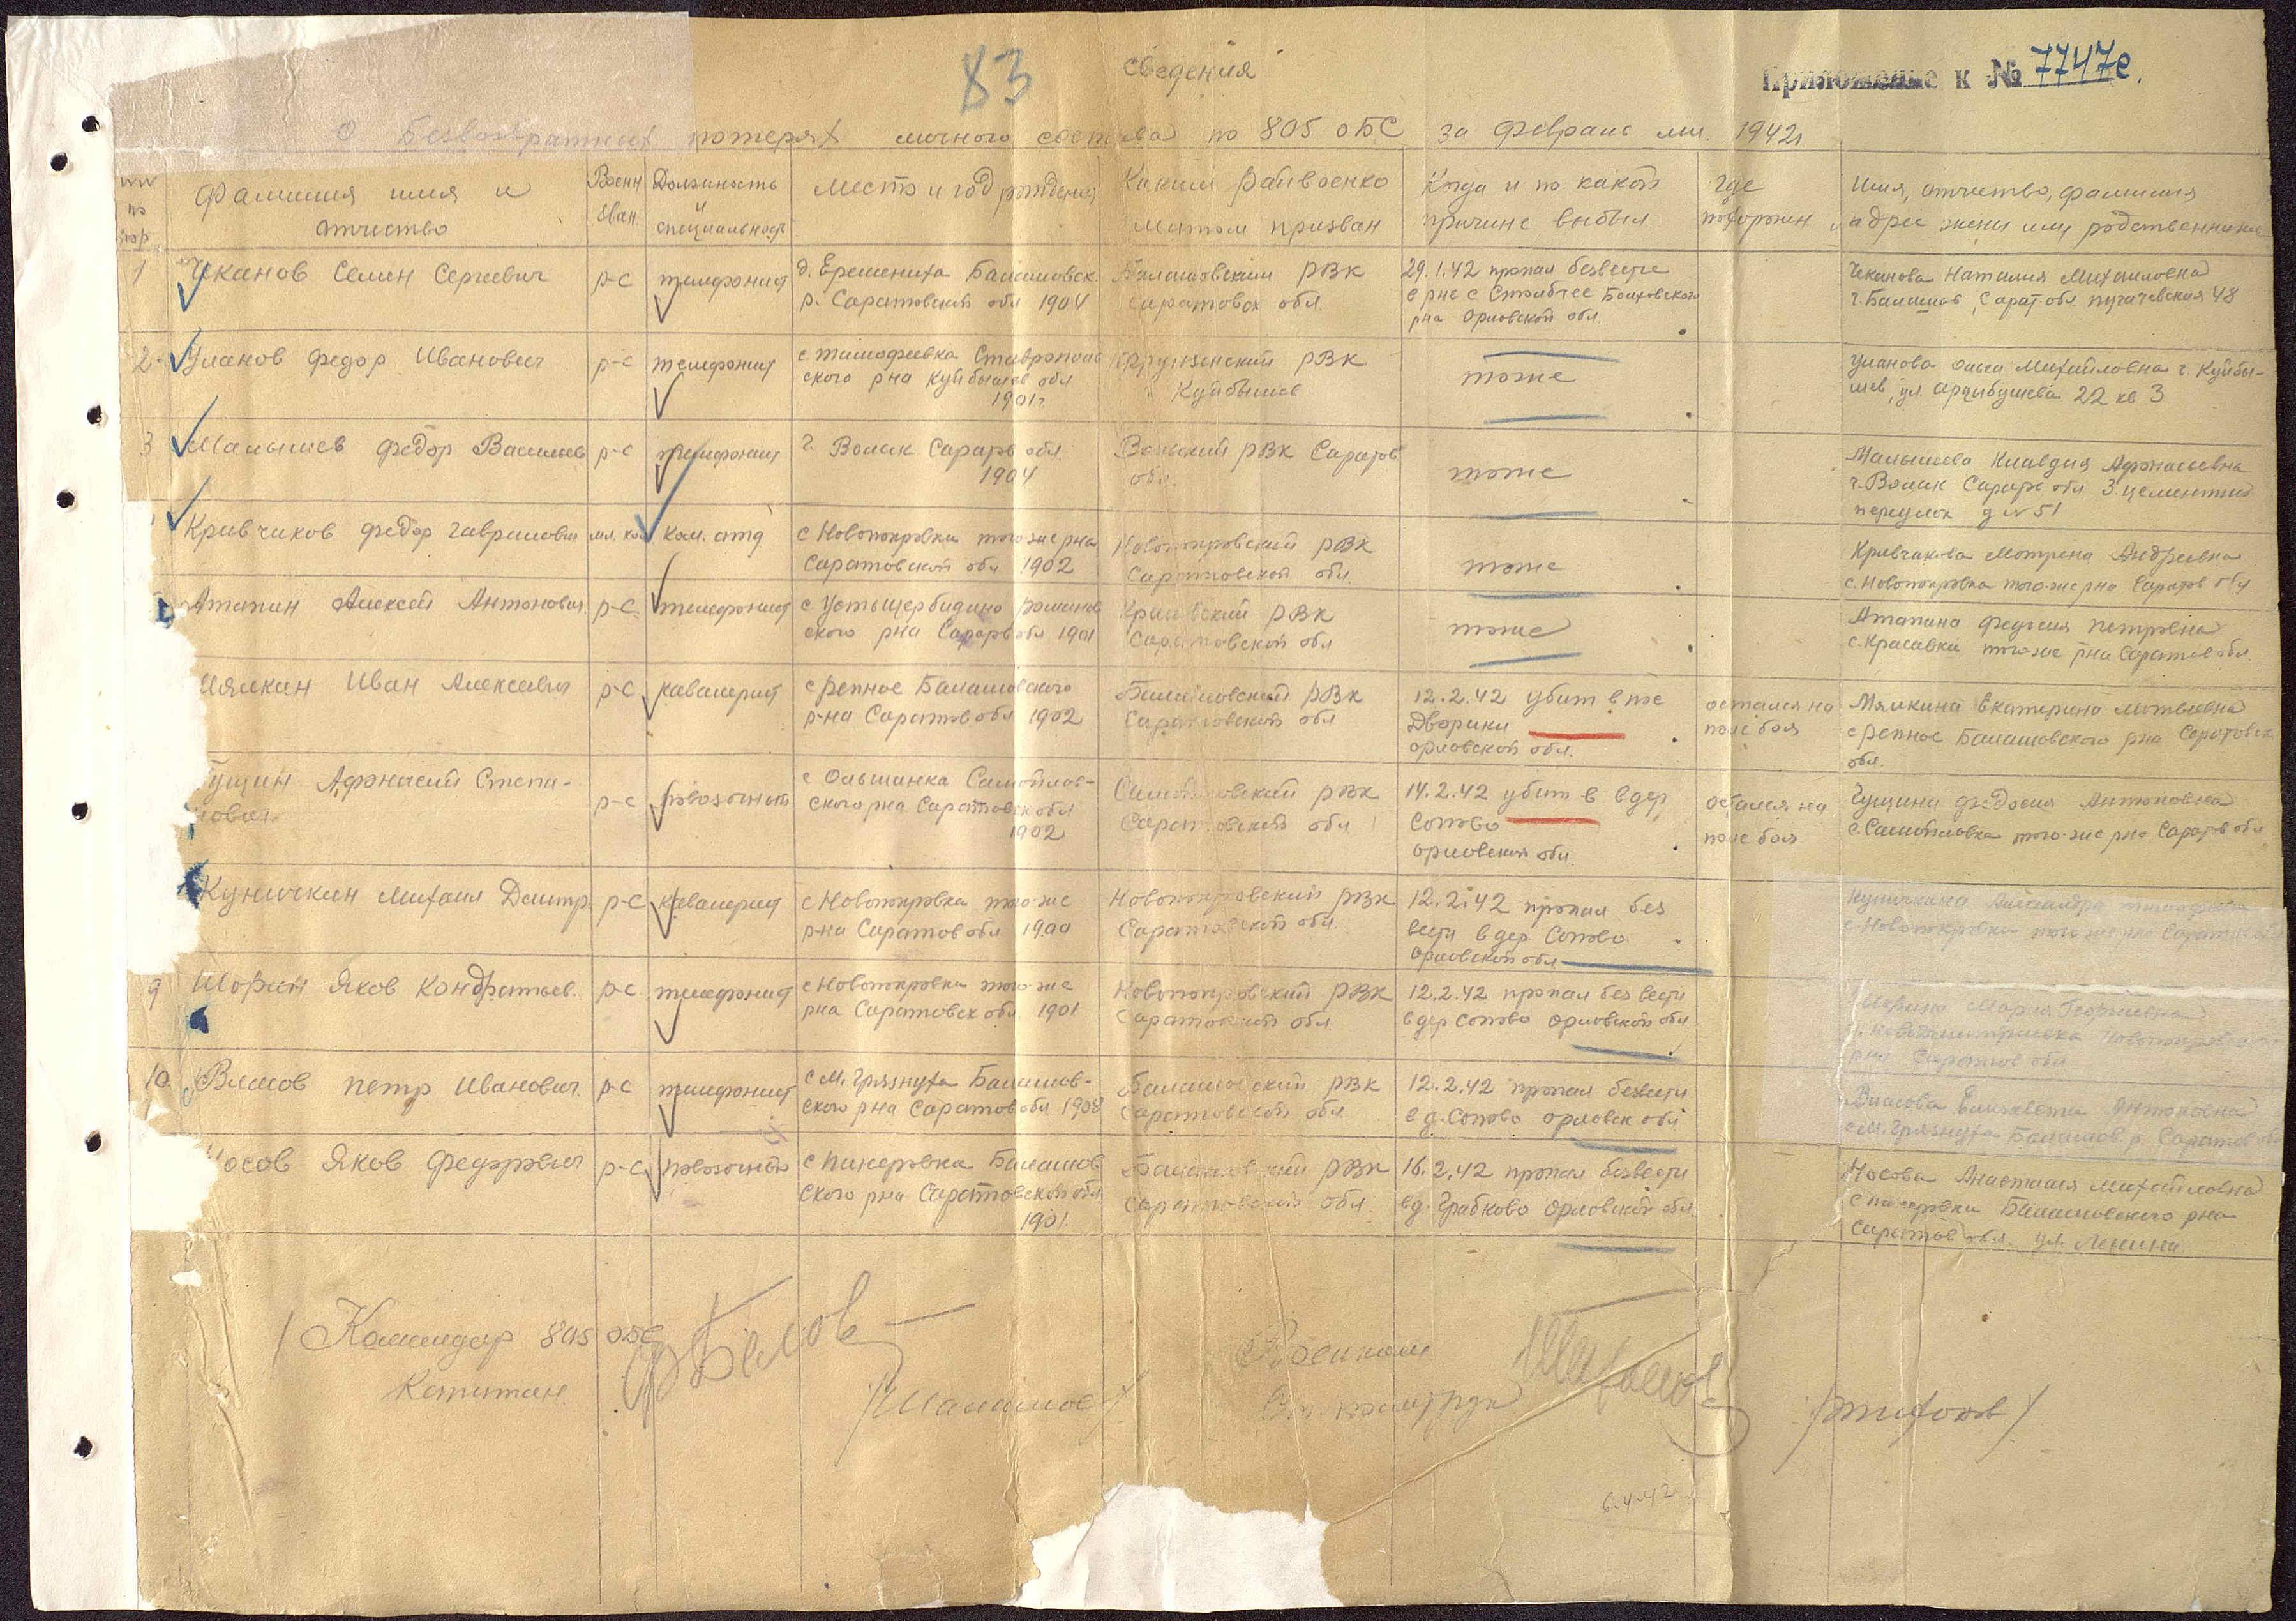 83
Сведения
Приложение к № 7747с.
о безвозвратных потерях личного состава по 805 ОБС за февраль м-ц. 1942г
№№ по пор
Фамилия имя и отчество
Воен зван
Должность и специальность
Место и год рождения
Каким райвоенкоматом призван
Когда и по какой причине выбыл
Где похоронен
Имя, отчество, фамилия и адрес жены или родственника
1 Чеканов Семен Сергеевич
р-с
телефонист
Балашовск.
р. Саратовской обл 1904
Балашовским РВК
Саратовск обл.
29.1.42 пропал безвести
в рне с
Болховского
рна Орловской обл.
Чеканова Наталия Михайловна
г. Балашов Сарат обл. Пугачевская 48
2 Уланов Федор Иванович
р-с
телефонист
с Тимофеевка Ставрополь
ского рна Куйбышев обл
1901г.
Фрунзенский РВК
Куйбышев
тоже
Уланова Ольга Михайловна г. Куйбы-
шев, ул. Арцыбушева 22 кв 3
3 Малышев Федор Васильев
р-с
телефонист
г. Вольск Сарат обл.
1904
Вольский РВК Саратов
обл.
тоже
Малышева Клавдия Афонасьевна
г. Вольск Сарат обл 3 цементный
переулок д № 51
Кривчиков Федор Гаврилович
мл. ком
ком. отд
с Новопокровка того же рна
Саратовской обл 1902
Новопокровский РВК
Саратовской обл.
тоже
Кривчикова Мотрена Андреевна
с. Новопокровка того-же рна Саратов обл
Атапин Алексей Антонович.
р-с
телефонист
ского рна Сарат обл 1901
РВК
Саратовской обл
тоже
Атапина Федосия Петровна
с. Красавка того-же рна Саратов обл.
Мялкин Иван Алексеевич
р-с
кавалерист
с Репное Балашовского
р-на Саратов обл 1902
Балашовский РВК
Саратовской обл
12.2.42 убит в пос
Дворики
Орловской обл.
остался на
поле боя
Мялкина Екатерина Матвеевна
с Репное Балашовского рна Саратовск
обл.
ущин Афонасий Степа-
нович
р-с
повозочный
с Ольшанка Самойлов-
ского рна Саратовск обл
1902
Самойловский РВК
Саратовской обл
14.2.42 убит в в дер
Сопово
Орловской обл.
остался на
поле боя
Гущина Федосия Антоновна
с. Самойловка того-же рна Саратов обл
Куничкин Михаил Дмитр.
р-с
кавалерист
с Новопокровка того-же
р-на Саратов обл 1900
Новопокровский РВК
Саратовской обл.
12.2.42 пропал без
вести в дер Сопово
Орловской обл
Куничкина
с Новопокровка того же рна Саратов
9 Шорин Яков Кондратьев.
р-с
телефонист
с Новопокровка того-же
рна Саратовск обл 1901
Новопокровский РВК
Саратовской обл.
12.2.42 пропал без вести
в дер Сопово Орловской обл
Шорина Мария Георгиевна
рна Саратов обл
10 Власов Петр Иванович.
р-с
телефонист
с М. Грязнуха Балашов-
ского рна Саратов обл 1908
Балашовский РВК
Саратовской обл
12.2.42 пропал безвести
в д. Сопово Орловск обл
Власова Елизавета Антоновна
с М. Грязнуха Балашов р Саратов об
Носов Яков Федорович
р-с
повозочный
с Пинеровка Балашов
ского рна Саратовской обл
1901.
Балашовский РВК
Саратовской обл.
16.2.42 пропал безвести
в д. Грабково Орловской обл.
Носова Анастасия Михайловна
с Пинеровка Балашовского рна
Саратов обл. ул. Ленина.
Командир 805 ОБС
Капитан
Военком
Ст. политрук
/Тихонов/
6.4.42